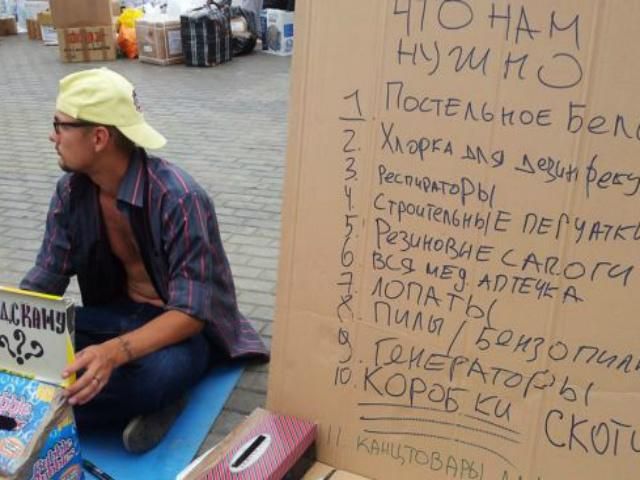 ЧТО НАМ
НУЖНО
1 ПОСТЕЛЬНОЕ БЕЛ
2. ХЛОРКА ДЛЯ ДЕЗИНФЕК
3. РЕСПИРАТОРЫ
4. СТРОИТЕЛЬНЫЕ ПЕРЧАТКИ
5. РЕЗИНОВЫЕ САПОГИ
6 ВСЯ МЕД. АПТЕЧКА
7. ЛОПАТЫ
8. ПИЛЫ / БЕНЗОПИЛ
9. ГЕНЕРАТОРЫ
10. КОРОБКИ СКОТ
11 КАНЦТОВАРЫ
ДСКАЖУ
?